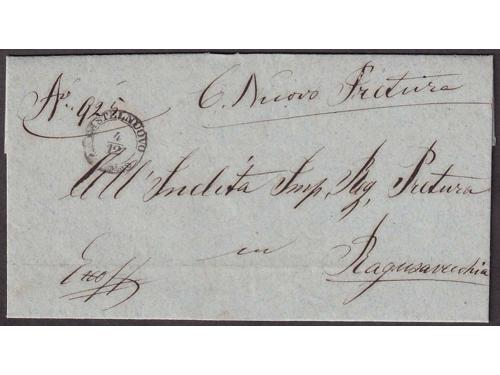 No. 925
C. Nuovo Pretura
CASTELNUOVO
4
12
All' Inclita Imp. Reg. Pretura
in
Ragusavecchia
Exoff